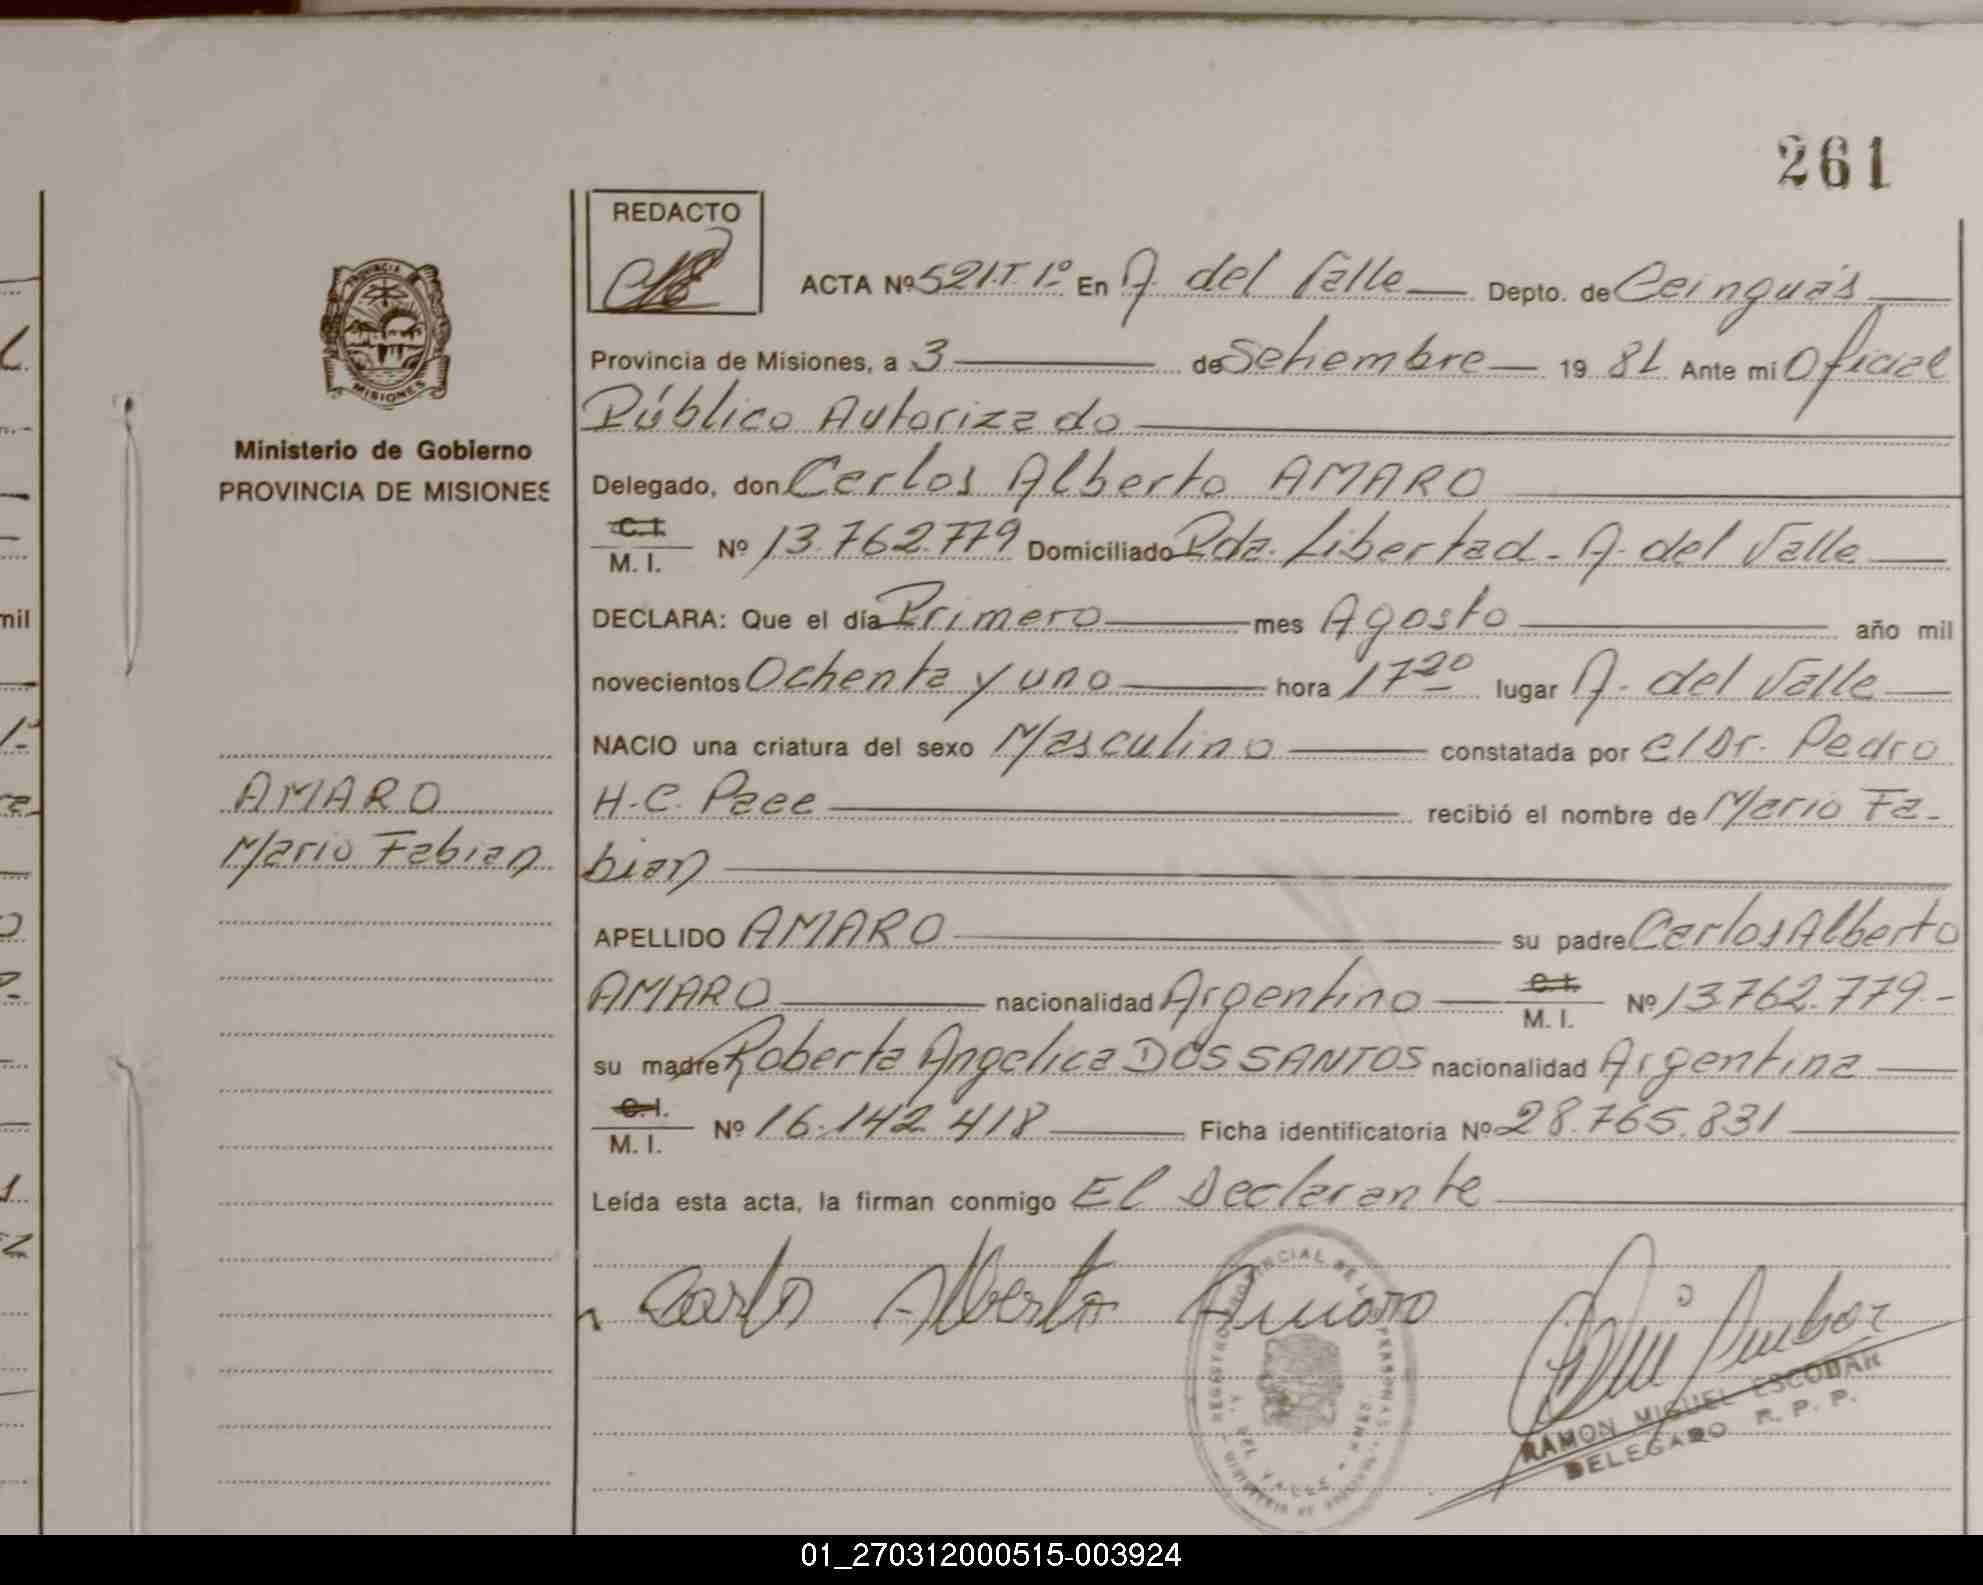 261
REDACTO
ACTA Nº 521.T.1º En A. del Valle Depto. de Cainguás
Provincia de Misiones, a 3 de Setiembre 19 81 Ante mi Oficial
Público Autorizado
Ministerio de Gobierno
PROVINCIA DE MISIONES
Delegado, don Carlos Alberto AMARO
C.I.
M. I. Nº 13.762.779 Domiciliado Pda. Libertad - A. del Valle
DECLARA: Que el día Primero mes Agosto año mil
novecientos Ochenta y uno hora 17 20 lugar A. del Valle
NACIO una criatura del sexo Masculino constatada por el Dr. Pedro
H.C. recibió el nombre de Mario Fa-
bian
AMARO
Mario Fabian
APELLIDO AMARO su padre Carlos Alberto
AMARO nacionalidad Argentino C.I. M. I. Nº 13.762.779.-
su madre Roberta Angelica DOS SANTOS nacionalidad Argentina
C.I.
M. I. Nº 16.142.418 Ficha identificatoria Nº 28.765.831
Leída esta acta, la firman conmigo El Declarante
Carlos Alberto Amaro
RAMON MIGUEL ESCOBAR
DELEGADO R. P. P.
mil
01_270312000515-003924